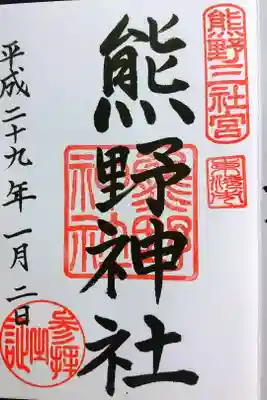 熊野三社宮
熊野神社
熊野
神社
平成二十九年一月二日
参拝
之証